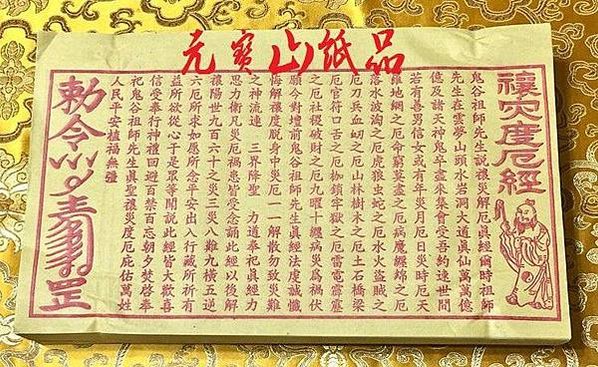 元寶山紙品
禳灾度厄經
鬼谷祖師先生說禳災解厄眞經爾時祖師
先生在雲夢山頭水岩洞大道眞仙萬萬億
億及諸天神鬼卒盡來集會受吾約速世間
若有善男信女或有年災月厄日災時厄天
羅地網之厄命窮莫盡之厄病魔纏綿之厄
落水波淘之厄虎狼虫蛇之厄水火盜賊之
厄刀兵血之厄山林樹木之厄土石橋梁
厄官符口舌之厄枷鎖牢獄之厄雷電霹靂
之厄社稷破財之厄九曜十纏病災爲禍伏
願今對壇前鬼谷祖師先生眞經法虔誠懺
悔解禳度脫身中災厄一一解散勿致災難
之神流連 三界降聖 力道奉祀眞經力
思力衛凡災厄禍患皆受念誦此經以後解
禳陽世九百六十之災三災八難九橫五逆
六厄所求如愿所念平安出入行藏所祈有
益所欲從心于是眾等聞說此經皆大歡喜
信受奉行神禮回避百禁百忘朝夕焚啓奉
祀鬼谷祖師先生眞聖禳災度厄庇佑萬姓
人民平安植福無疆
勅令罡